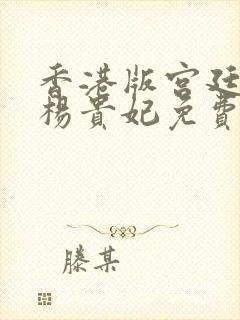 香港版宫廷
杨贵妃免费
滕某